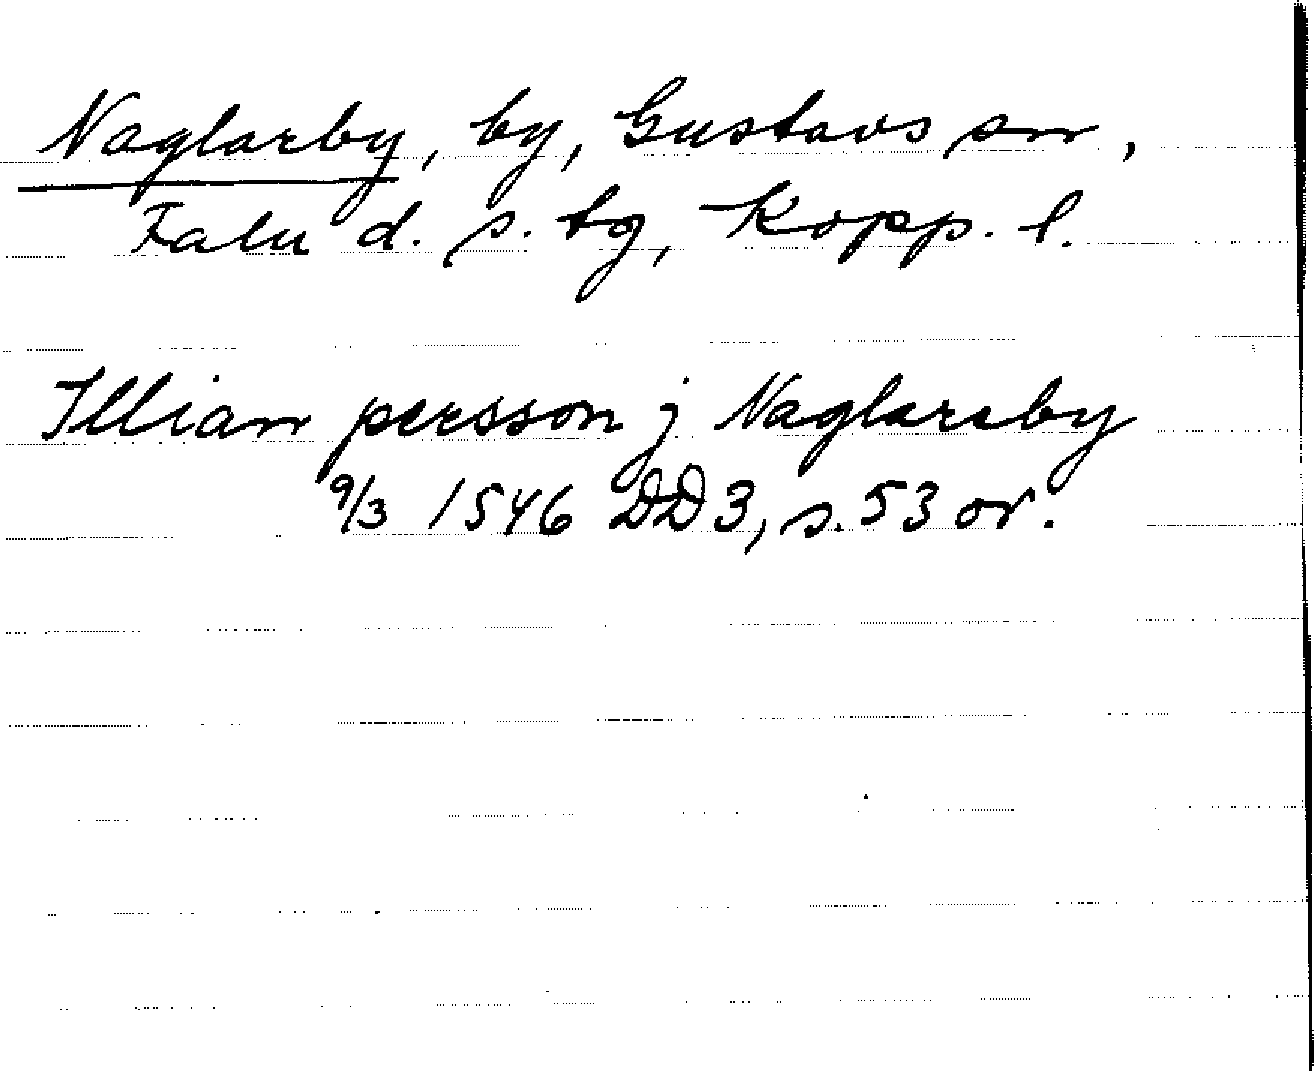 Naglarby, by, Gustavs sn,
Falu d. s. tg, Kopp. l.
Illian persson j Naglareby
9/3 1546 DD3, s. 53 or.